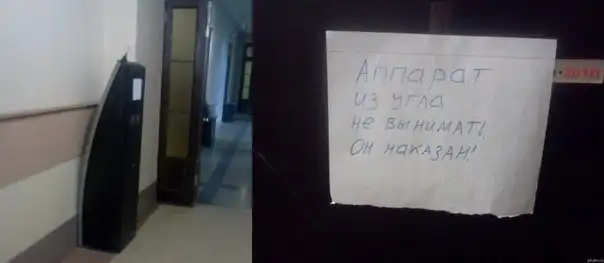 Аппарат
из угла
не вынимать,
Он наказан!
2010